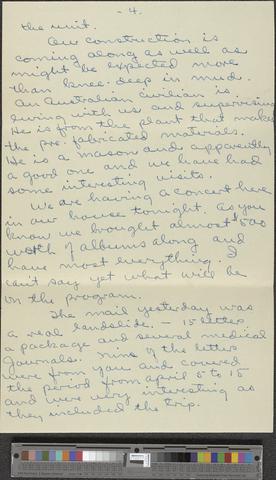 - 4. -
the unit.
Our construction is
coming along as well as
might be expected more
than knee-deep in mud.
An Australian civilian is
living with us and supervising
He is from the plant that makes
the pre-fabricated materials.
He is a mason and apparently
a good one and we have had
some interesting visits.
We are having a concert here
in our house tonight. As you
know we brought almost $500
worth of albums along and
have most everything. I
can't say yet what will be
on the program.
The mail yesterday was
a real landslide. - 15 letters
a package and several medical
Journals. Nine of the letters
were from you and covered
the period from April 5 to 15
and were very interesting as
they included the trip.